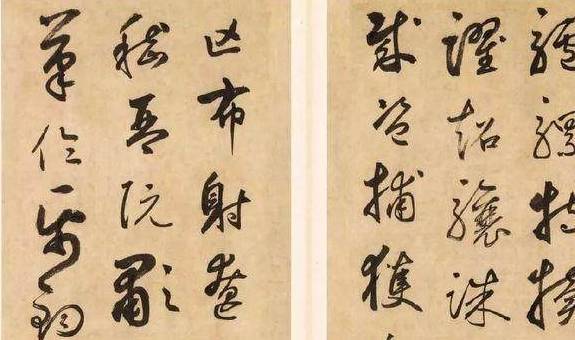 驢騾特犢
躍超驤誅
賊盜捕獲
亡布射遼
嵇琴阮嘯
筆倫紙鈞